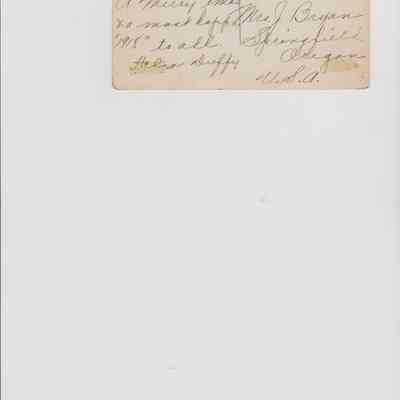 A Merry Xmas
& most happy
"1915" to all.
Duffy
Mrs J Bryan
Springfield
Oregon
U.S.A.